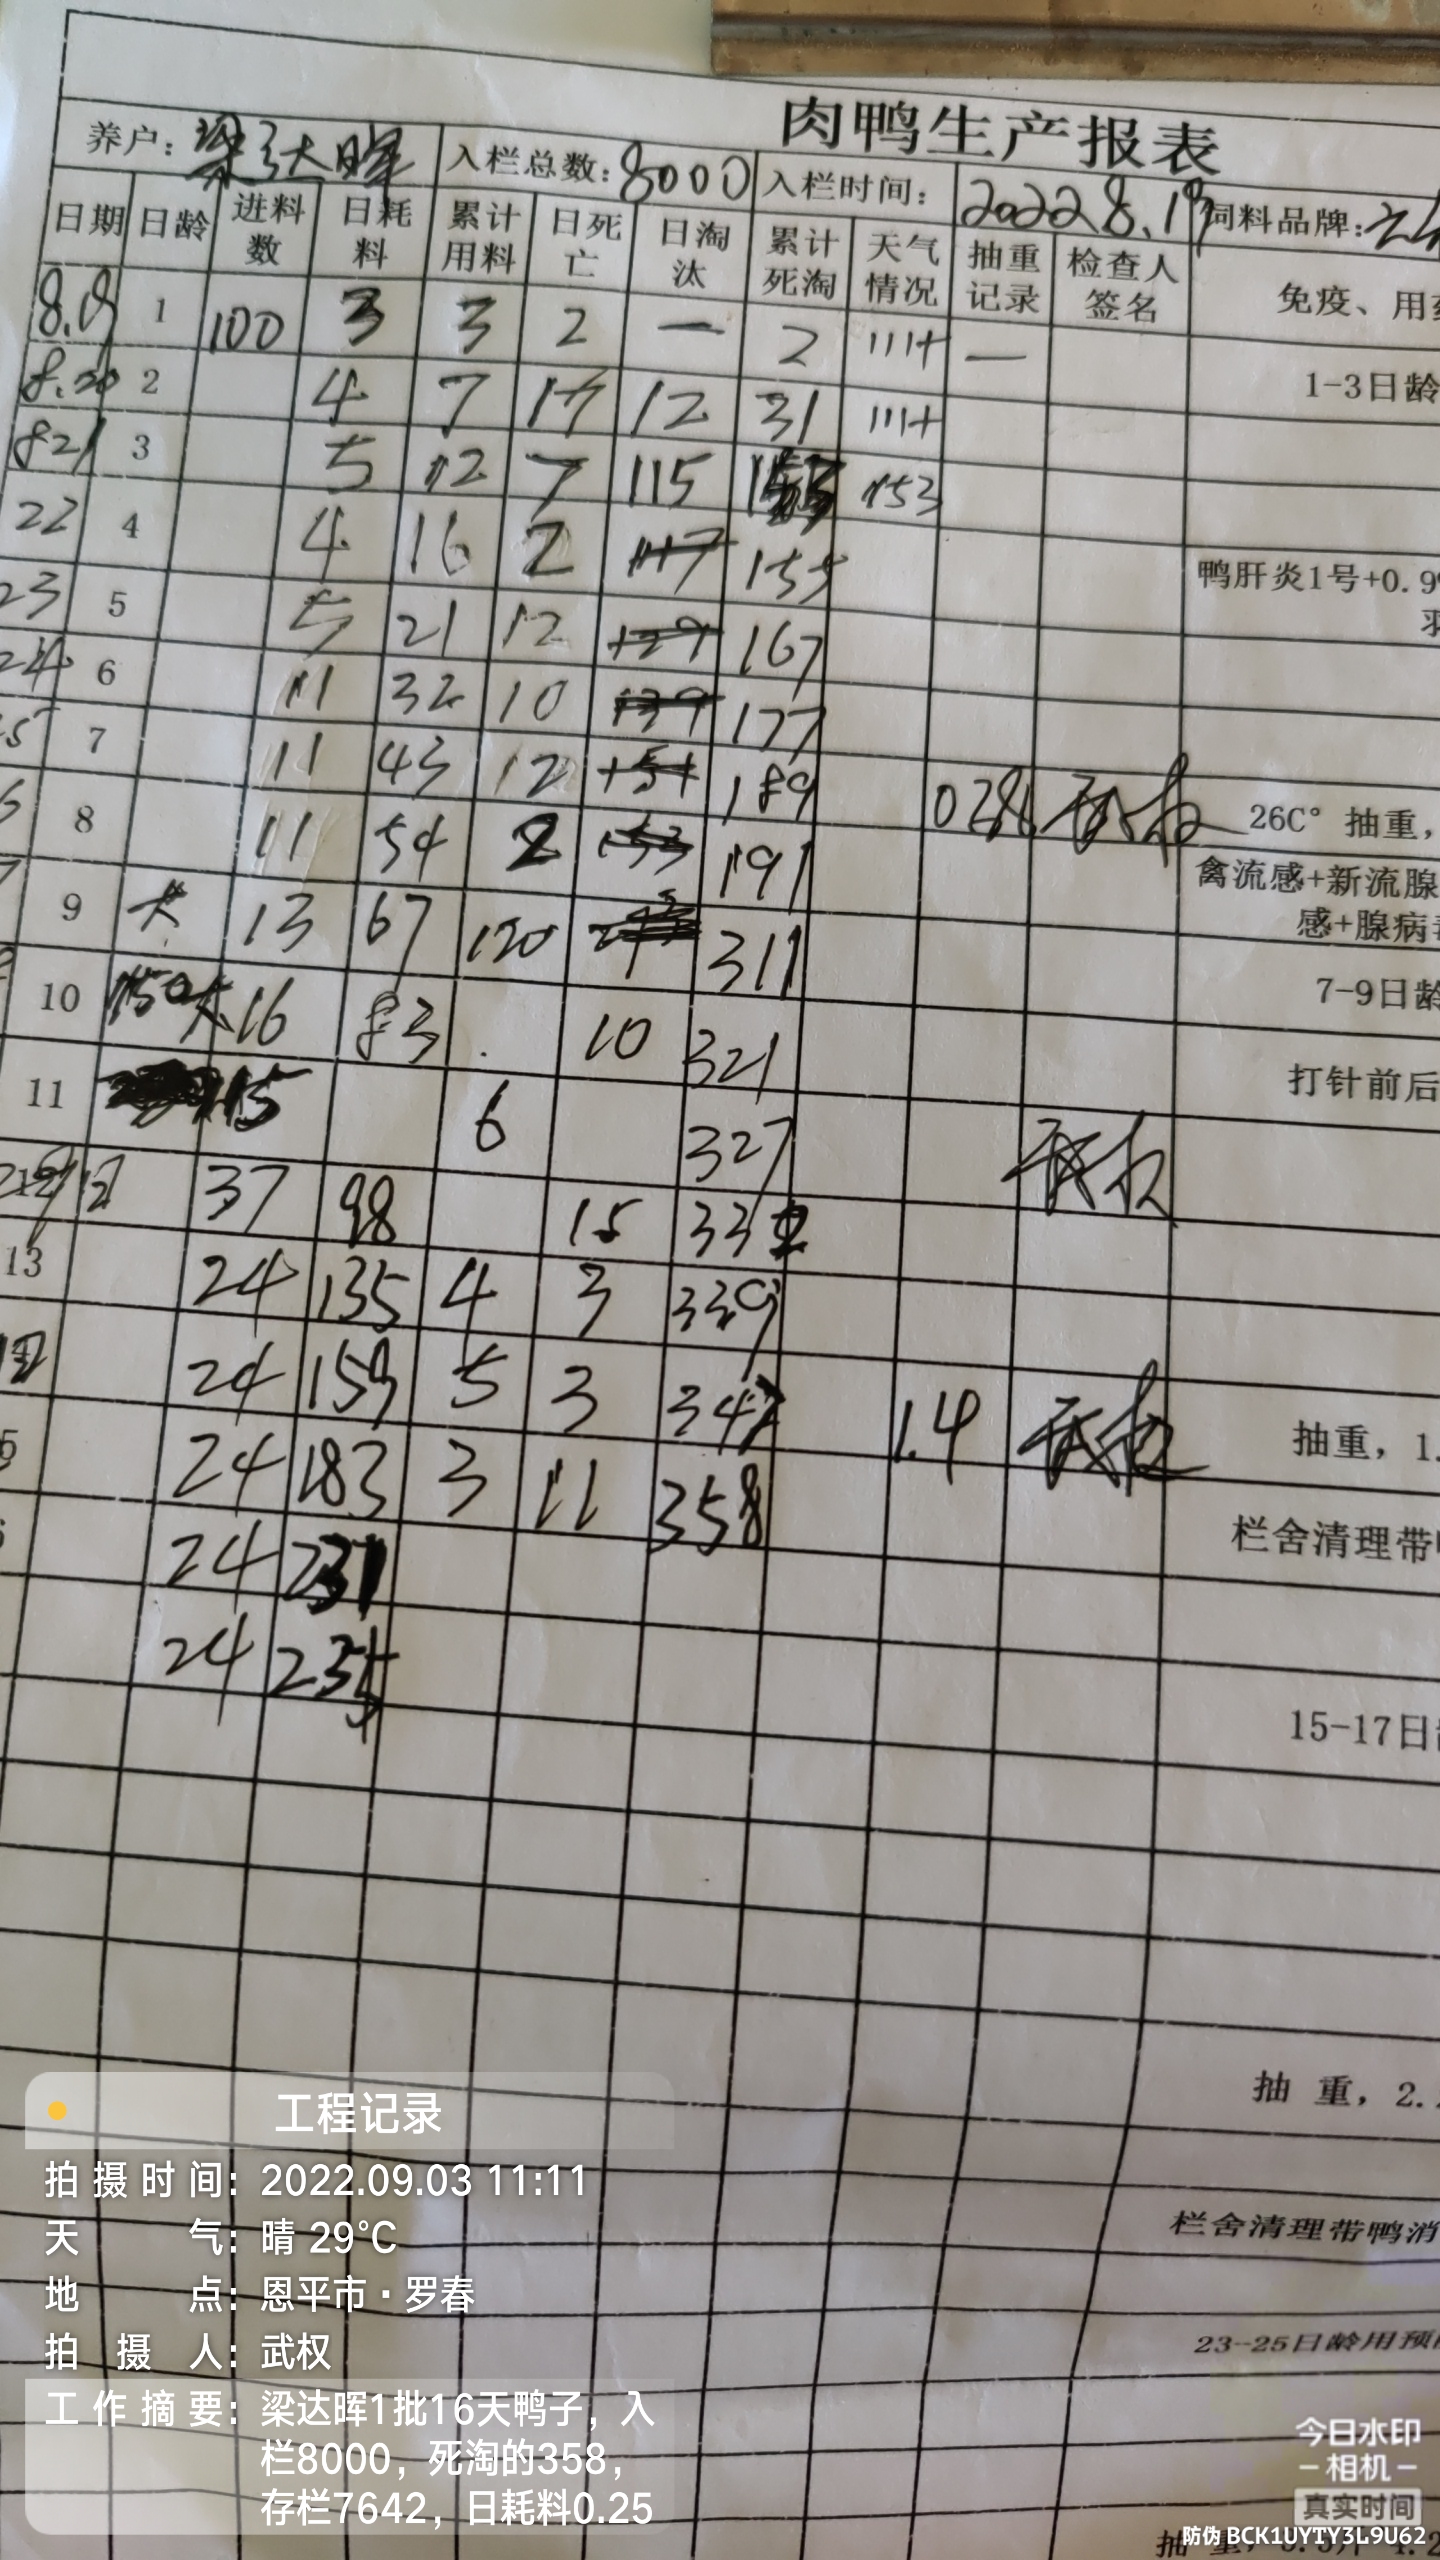 肉鸭生产报表
养户: 梁达晖 入栏总数: 8000 入栏时间: 2022 8.19 饲料品牌:
日期 日龄 进料数 日耗料 累计用料 日死亡 日淘汰 累计死淘 天气情况 抽重记录 检查人签名 免疫、用
8.19 1 100 3 3 2 — 2 —
8.20 2 4 7 17 12 31 1-3日龄
821 3 5 12 7 115 153
22 4 4 16 2 117 155 鸭肝炎1号+0.9
23 5 5 21 12 129 167
24 6 11 32 10 139 177
7 11 43 12 151 189 武权 26C° 抽重,
8 11 54 2 153 191 禽流感+新流腺
感+腺病
9 大 13 67 120 311 7-9日龄
10 150大 16 83 10 321 打针前后
11 15 6 327 武权
12 37 98 15 332
13 24 135 4 3 339
24 159 5 3 347 1.4 武权 抽重, 1.
24 183 3 11 358 栏舍清理带
24 231
24 235 15-17日
抽 重, 2.
栏舍清理带鸭消
23-25日龄用预
抽 重,
工程记录
拍摄时间: 2022.09.03 11:11
天气: 晴 29°C
地点: 恩平市·罗春
拍摄人: 武权
工作摘要: 梁达晖1批16天鸭子，入
栏8000，死淘的358，
存栏7642，日耗料0.25
今日水印
相机
真实时间
防伪 BCK1UYTY3L9U62